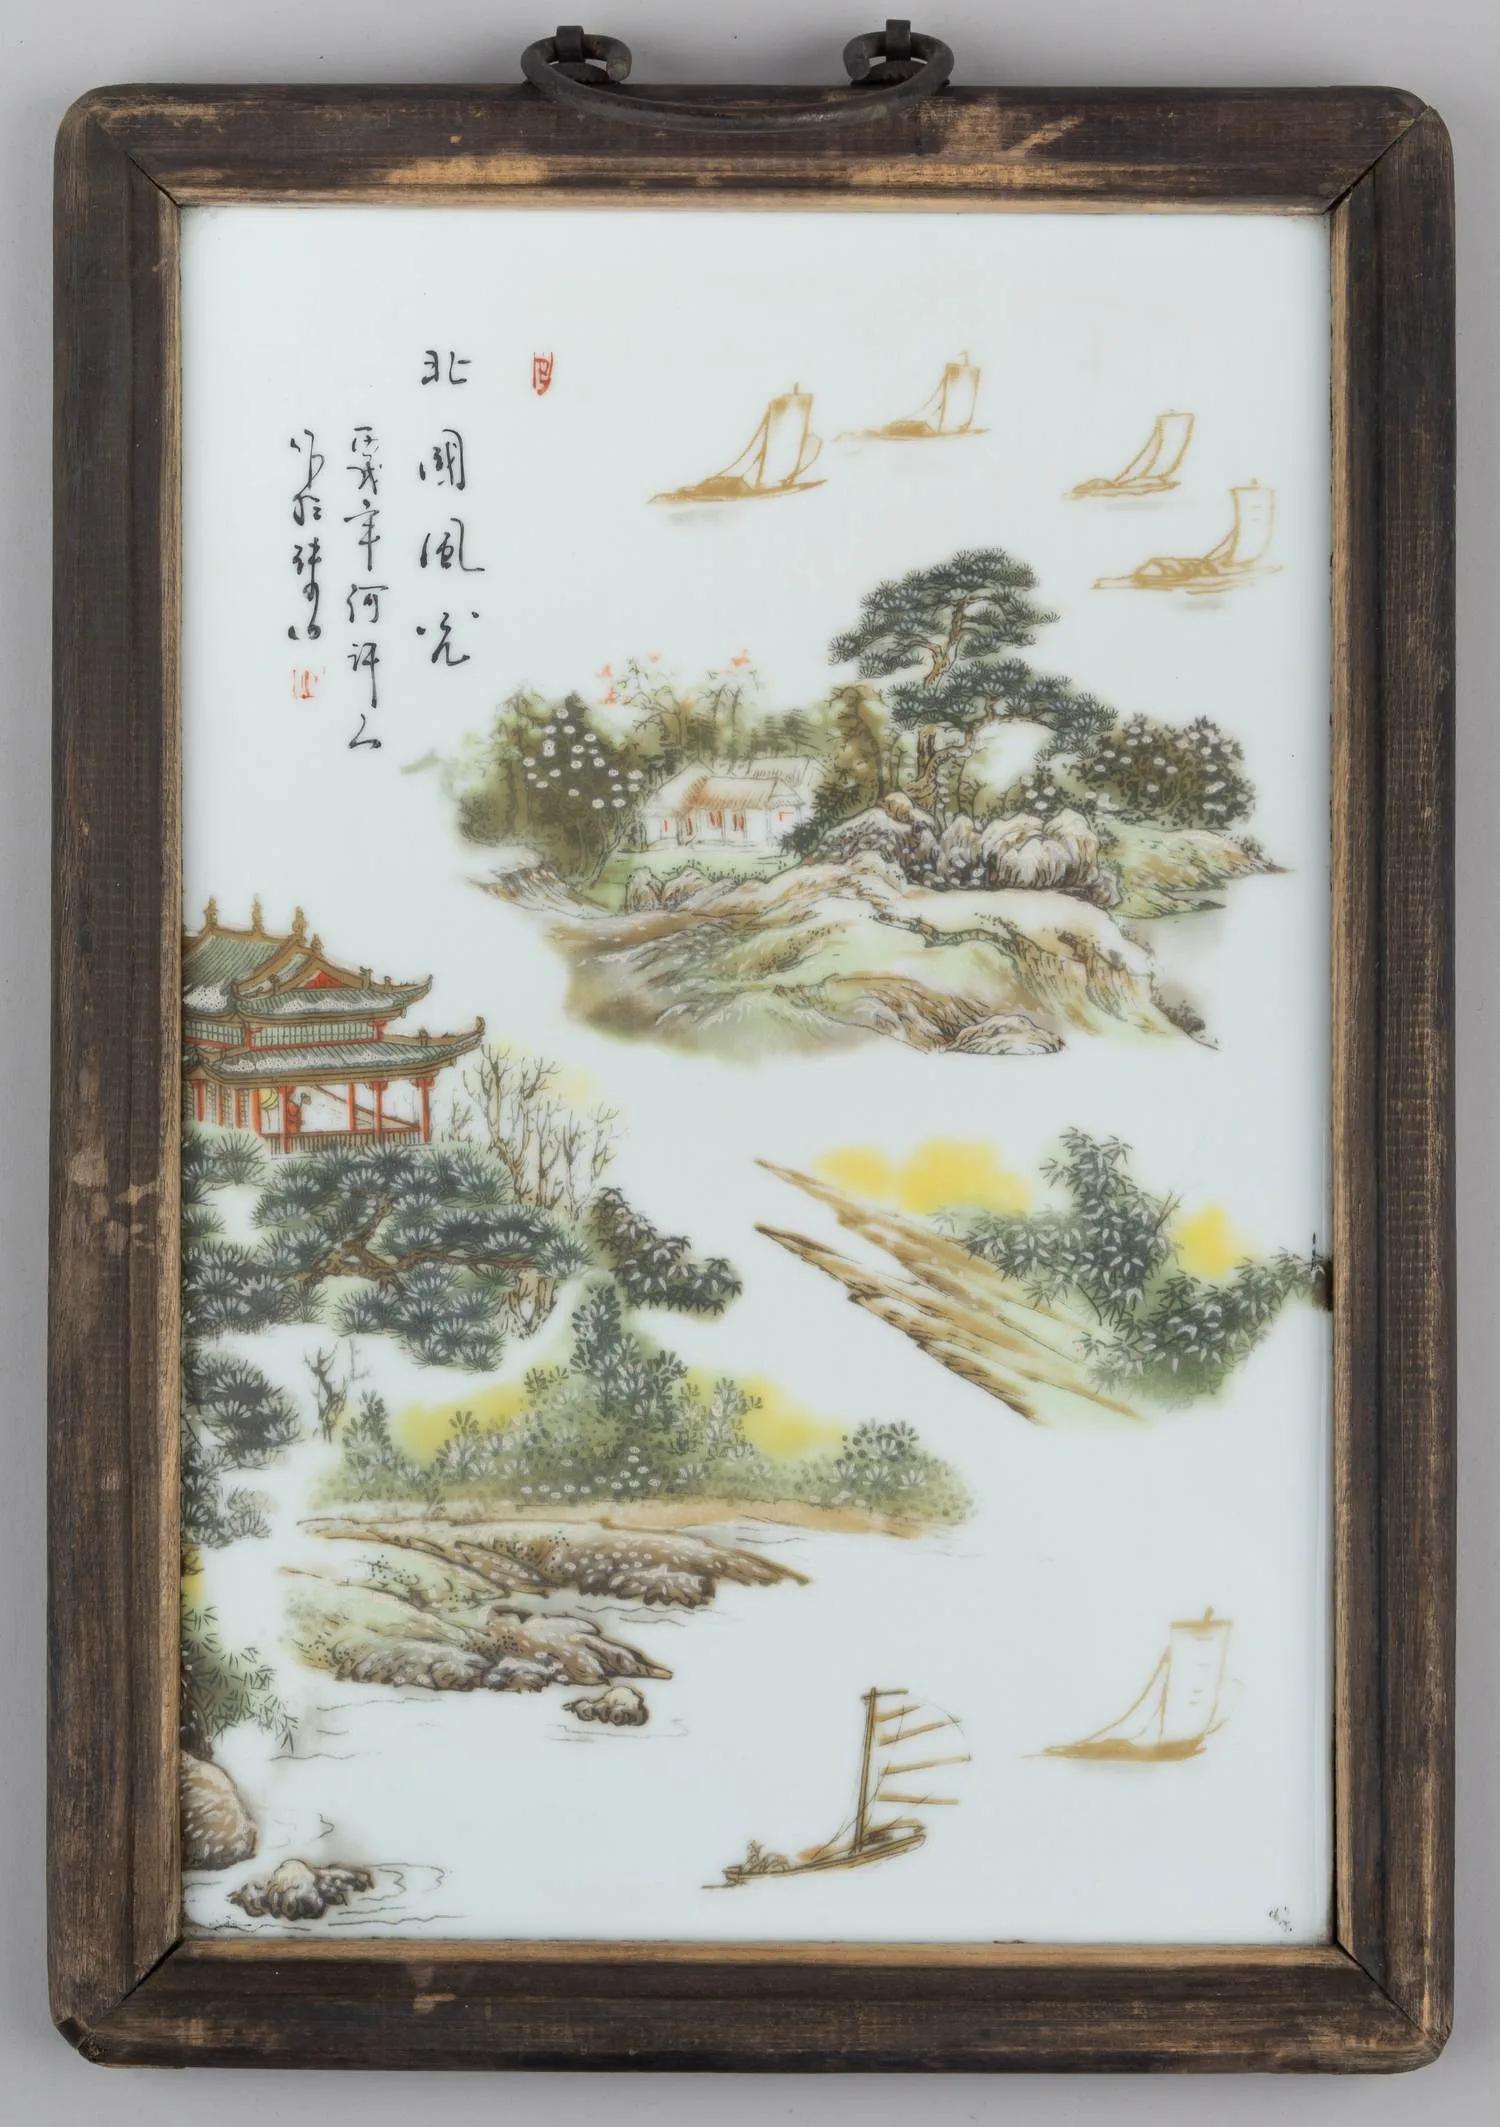 北國風光
丙戌年何許人
作於珠山